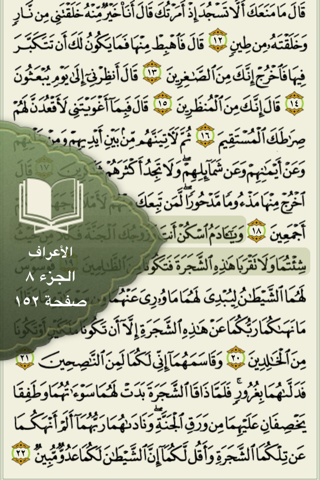 قَالَ مَا مَنَعَكَ أَلَّا تَسْجُدَ إِذْ أَمَرْتُكَ قَالَ أَنَا۠ خَيْرٌ مِّنْهُ خَلَقْتَنِى مِن نَّارٍ
وَخَلَقْتَهُۥ مِن طِينٍ ١٢ قَالَ فَٱهْبِطْ مِنْهَا فَمَا يَكُونُ لَكَ أَن تَتَكَبَّرَ
فِيهَا فَٱخْرُجْ إِنَّكَ مِنَ ٱلصَّٰغِرِينَ ١٣ قَالَ أَنظِرْنِىٓ إِلَىٰ يَوْمِ يُبْعَثُونَ
١٤ قَالَ إِنَّكَ مِنَ ٱلْمُنظَرِينَ ١٥ قَالَ فَبِمَآ أَغْوَيْتَنِى لَأَقْعُدَنَّ لَهُمْ
صِرَٰطَكَ ٱلْمُسْتَقِيمَ ١٦ ثُمَّ لَءَاتِيَنَّهُم مِّنۢ بَيْنِ أَيْدِيهِمْ وَمِنْ خَلْفِهِمْ
وَعَنْ أَيْمَٰنِهِمْ وَعَن شَمَآئِلِهِمْ ۖ وَلَا تَجِدُ أَكْثَرَهُمْ شَٰكِرِينَ ١٧
ٱخْرُجْ مِنْهَا مَذْءُومًا مَّدْحُورًا ۖ لَّمَن تَبِعَكَ
أَجْمَعِينَ ١٨ وَيَٰٓـَٔادَمُ ٱسْكُنْ أَنتَ وَزَوْجُكَ ٱلْجَنَّةَ
شِئْتُمَا وَلَا تَقْرَبَا هَٰذِهِ ٱلشَّجَرَةَ فَتَكُونَا مِنَ ٱلظَّٰلِمِينَ ١٩ فَوَسْوَسَ
لَهُمَا ٱلشَّيْطَٰنُ لِيُبْدِىَ لَهُمَا مَا وُۥرِىَ عَنْهُمَا
مَا نَهَىٰكُمَا رَبُّكُمَا عَنْ هَٰذِهِ ٱلشَّجَرَةِ إِلَّآ أَن تَكُونَا مَلَكَيْنِ أَوْ تَكُونَا
مِنَ ٱلْخَٰلِدِينَ ٢٠ وَقَاسَمَهُمَآ إِنِّى لَكُمَا لَمِنَ ٱلنَّٰصِحِينَ ٢١
فَدَلَّىٰهُمَا بِغُرُورٍ ۚ فَلَمَّا ذَاقَا ٱلشَّجَرَةَ بَدَتْ لَهُمَا سَوْءَٰتُهُمَا وَطَفِقَا
يَخْصِفَانِ عَلَيْهِمَا مِن وَرَقِ ٱلْجَنَّةِ ۖ وَنَادَىٰهُمَا رَبُّهُمَآ أَلَمْ أَنْهَكُمَا
عَن تِلْكُمَا ٱلشَّجَرَةِ وَأَقُل لَّكُمَآ إِنَّ ٱلشَّيْطَٰنَ لَكُمَا عَدُوٌّ مُّبِينٌ ٢٢
الأعراف
الجزء ٨
صفحة ١٥٢